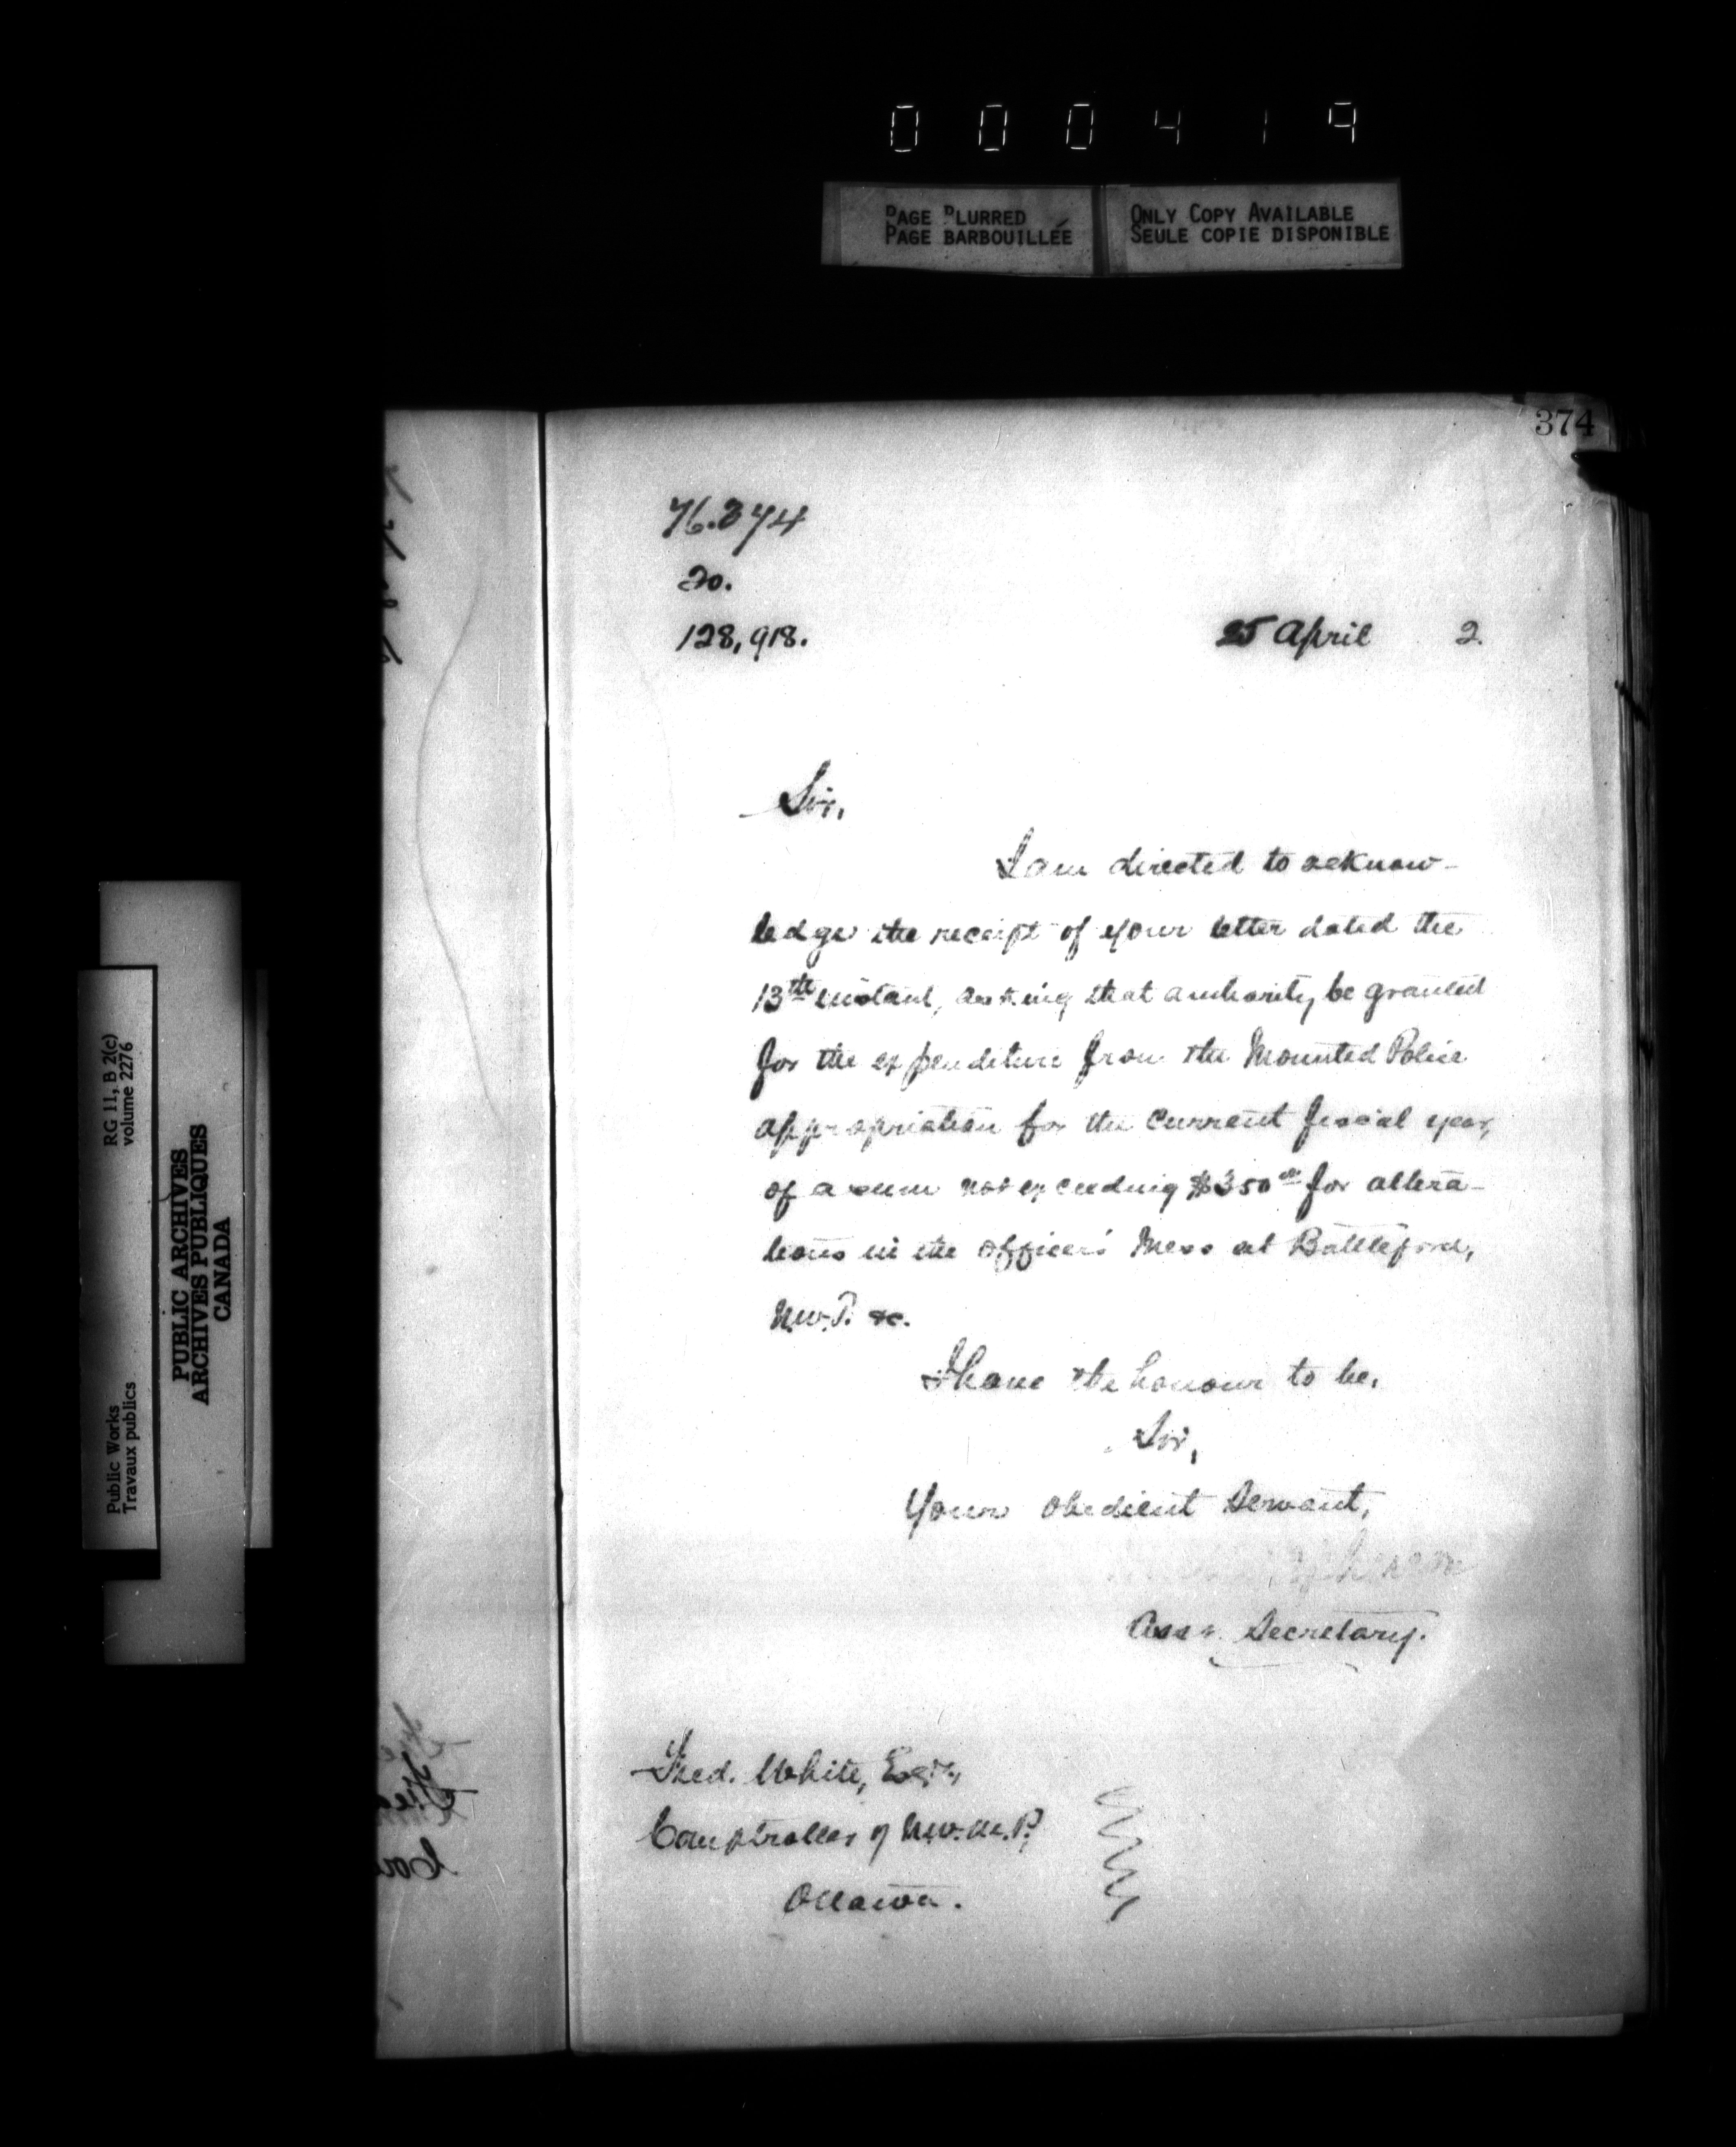 000419
PAGE BLURRED
PAGE BARBOUILLÉE
ONLY COPY AVAILABLE
SEULE COPIE DISPONIBLE
374
76.374
20.
128,918.
25 April 2.
Sir,
I am directed to acknow-
ledge the receipt of your letter dated the
13th instant, asking that authority be granted
for the expenditure from the Mounted Police
appropriation for the current fiscal year,
of a sum not exceeding $350 00 for altera-
tions in the officers' Mess at Battleford,
N.W.T. &c.
I have the honour to be,
Sir,
Your obedient Servant,
Asst. Secretary.
Fred. White, Esqr.,
Comptroller of N.W.M.P.
Ottawa.
RG 11, B 2(c)
volume 2276
Public Works
Travaux publics
PUBLIC ARCHIVES
ARCHIVES PUBLIQUES
CANADA